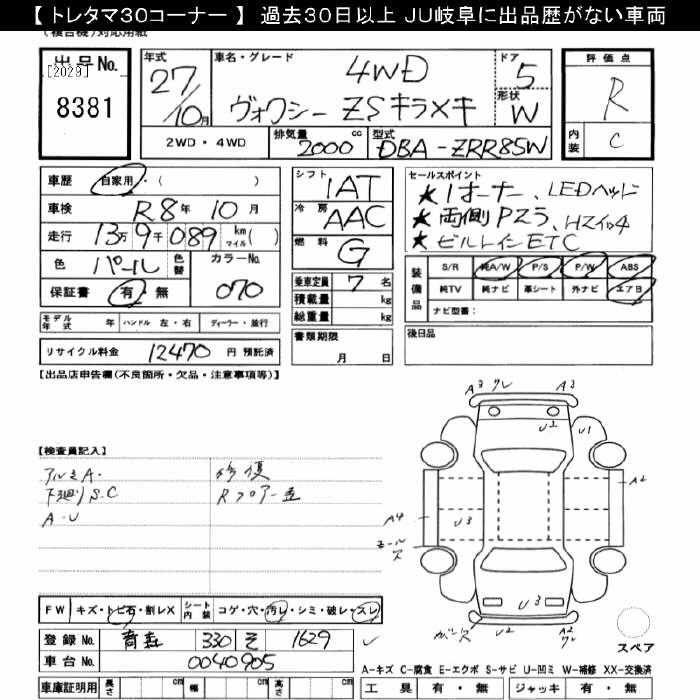 【 トレタマ30コーナー 】 過去30日以上 JU岐阜に出品歴がない車両
(複合機)対応用紙
出 品 No.
[2029]
8381
年式
27/10月
車名・グレード
4WD
ヴォクシー ZSキラメキ
ドア
5
形状
W
評 価 点
R
内装
C
2WD ・ 4WD
排気量
2000 cc
型式
DBA-ZRR85W
車歴 自家用・( )
車検 R8年 10月
走行 13万9千089 km マイル( )
色 パール 色替 カラーNo. 070
保証書 有 無
モデル年式 年 ハンドル 左・右 ディーラー・並行
リサイクル料金 12470 円 預託済
シフト 1AT
冷房 AAC
燃料 G
乗車定員 7 名
積載量 kg
総重量 kg
書類期限
月 日
セールスポイント
★1オーナー、LEDヘッド
★両側Pスラ、Hスイッチ
★ビルトインETC
装備品
S/R 純A/W P/S P/W ABS
純TV 純ナビ 革シート 外ナビ エアB
ナビ型番:
後日品
【出品店申告欄(不良箇所・欠品・注意事項等)】
【検査員記入】
アルミA・
下廻りS.C
A・U
修復
Rフロアー歪
A3 ワレ A3
U2 U1
A2
A4 U3
モール欠
U3
ガバ欠 U2 A2 ワレ
スペア
FW キズ・トビ石・割レX シート内装 コゲ・穴・汚レ・シミ・破レ・スレ
登録 No. 青森 330 そ 1629
車台 No. 0040905
車庫証明用 長さ cm 幅 cm 高さ cm
A-キズ C-腐食 E-エクボ S-サビ U-凹ミ W-補修 XX-交換済
工 具 有 ・ 無 ジャッキ 有 ・ 無